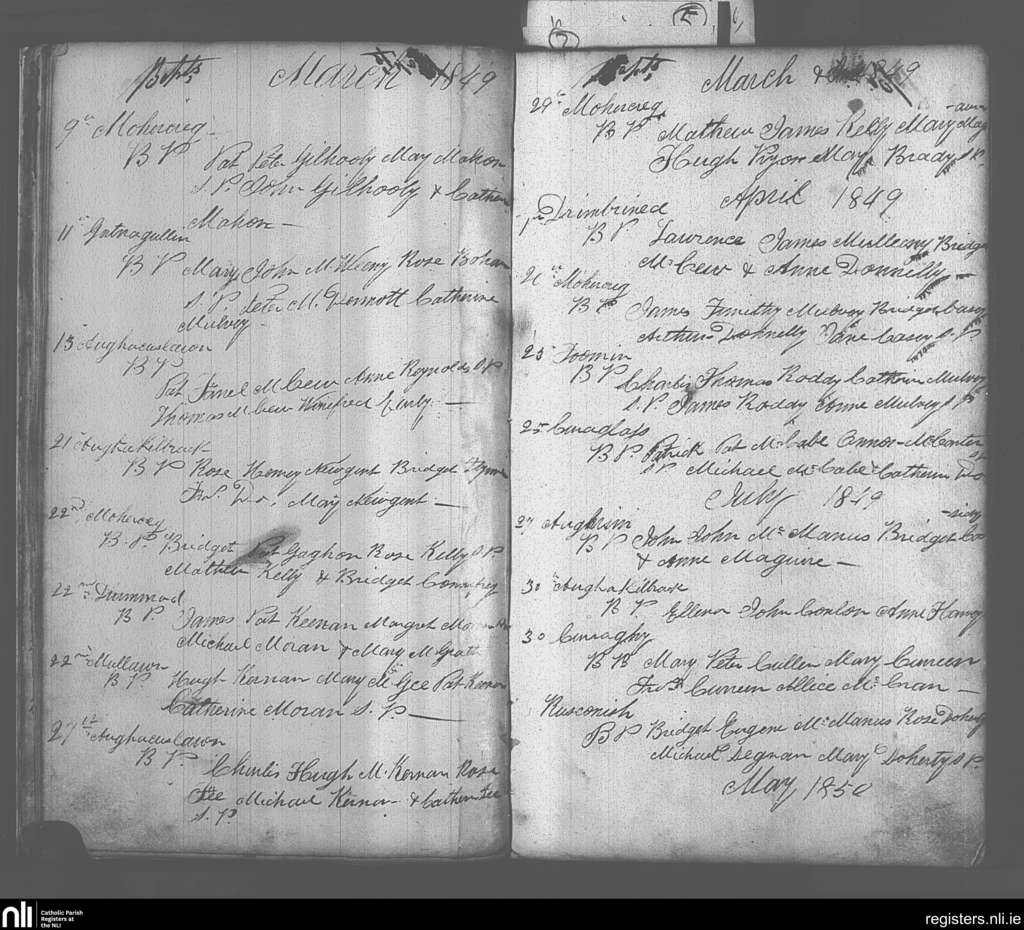 Bapts March 1849
9th Mohercreg
B P Pat Peter Gilhooly Mary Mahon
S. P. John Gilhooly & Cathern
Mahon —
11th Gatnagullen
B P Mary John McWeeny Rose Bohan
S. P. Peter McDermott Catherine
Mulvey
13th Aughacuslawn
B P
Pat McCew Anne Reynolds S P
Thomas McCew Winefred Early —
21st Aughakiltrack
B P Rose Henry Newgent Bridget Flynn
May Newgent —
22nd Mohercreg
B. P. Bridget Pat Gaghon Rose Kelly S P
Mathew Kelly & Bridget
22nd Drummad
B P. James Pat Keenan Margret
Michael Moran & Mary McGrath
22nd Mullawn
B P. Hugh Kernan Mary McGee Pat
Catherine Moran S. P. —
27th Aughacuslawn
B P.
Charlis Hugh McKernan Rose
Fee Michael Kernan & Cathern Fee
S. P
Bapts March & 1849
29th Mohercreg
B P Mathew James Kelly Mary
Hugh Pryor Mary Brady S P.
April 1849
Drimbrined
B P Lawrence James Mulleany Bridget
McCew & Anne Donnelly —
Mohercreg
B P James Timithy Mulvey Bridget Casey
Arthur Donnelly Jane Casey S P
25 Toomin
B P Charlis Thomas Roddy Cathrin Mulvey
S. P. James Roddy Anne Mulvey S P
25 Curraglass
B P Patrick Pat McCabe
S P Michael McCabe Cathern
July 1849
27 Aughrim
B P John John McManus Bridget
& Anne Maguire —
30th Aughakiltrack
B P Ellenor John Conlon Anne
30 Curraghy
B P Mary Peter Cullen Mary Curreen
Curreen Allice McCran —
Rusconish
B P Bridget Eugene McManus Rose Doherty
Michael Degnan Mary Doherty S P.
May 1850
nli
Catholic Parish
Registers at
the NLI
registers.nli.ie